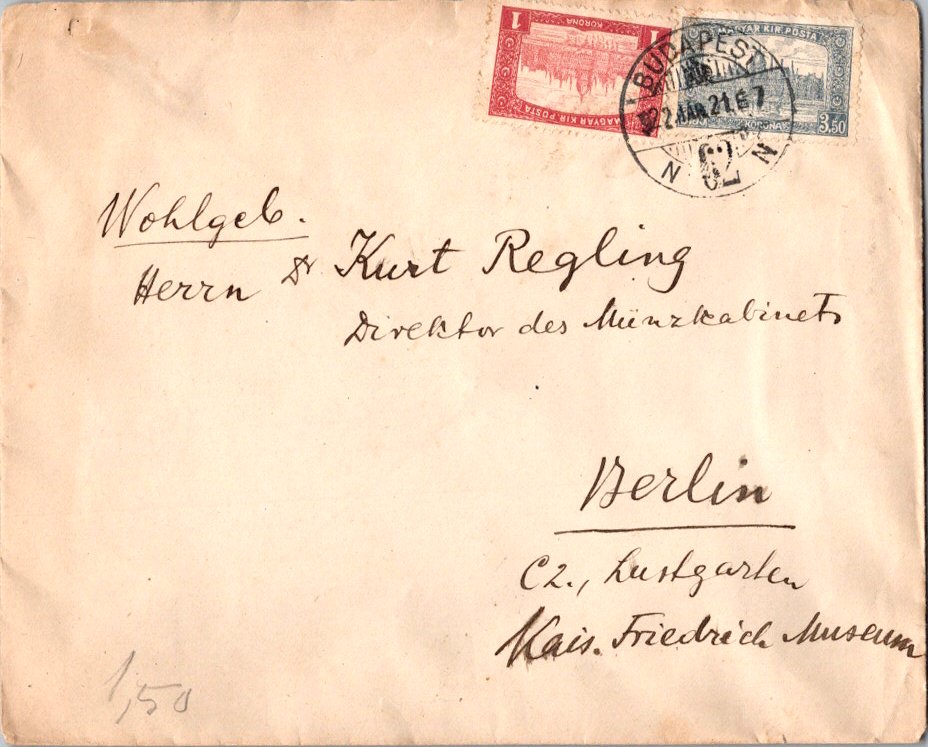 1 KORONA 1
MAGYAR KIR. POSTA
MAGYAR KIR. POSTA
KORONA
3.50
BUDAPEST
22 MÁR. 21. E 7
N 72 N
Wohlgeb.
Herrn Dr Kurt Regling
Direktor des Münzkabinets
Berlin
C2., Lustgarten
Kais. Friedrich Museum
1,50